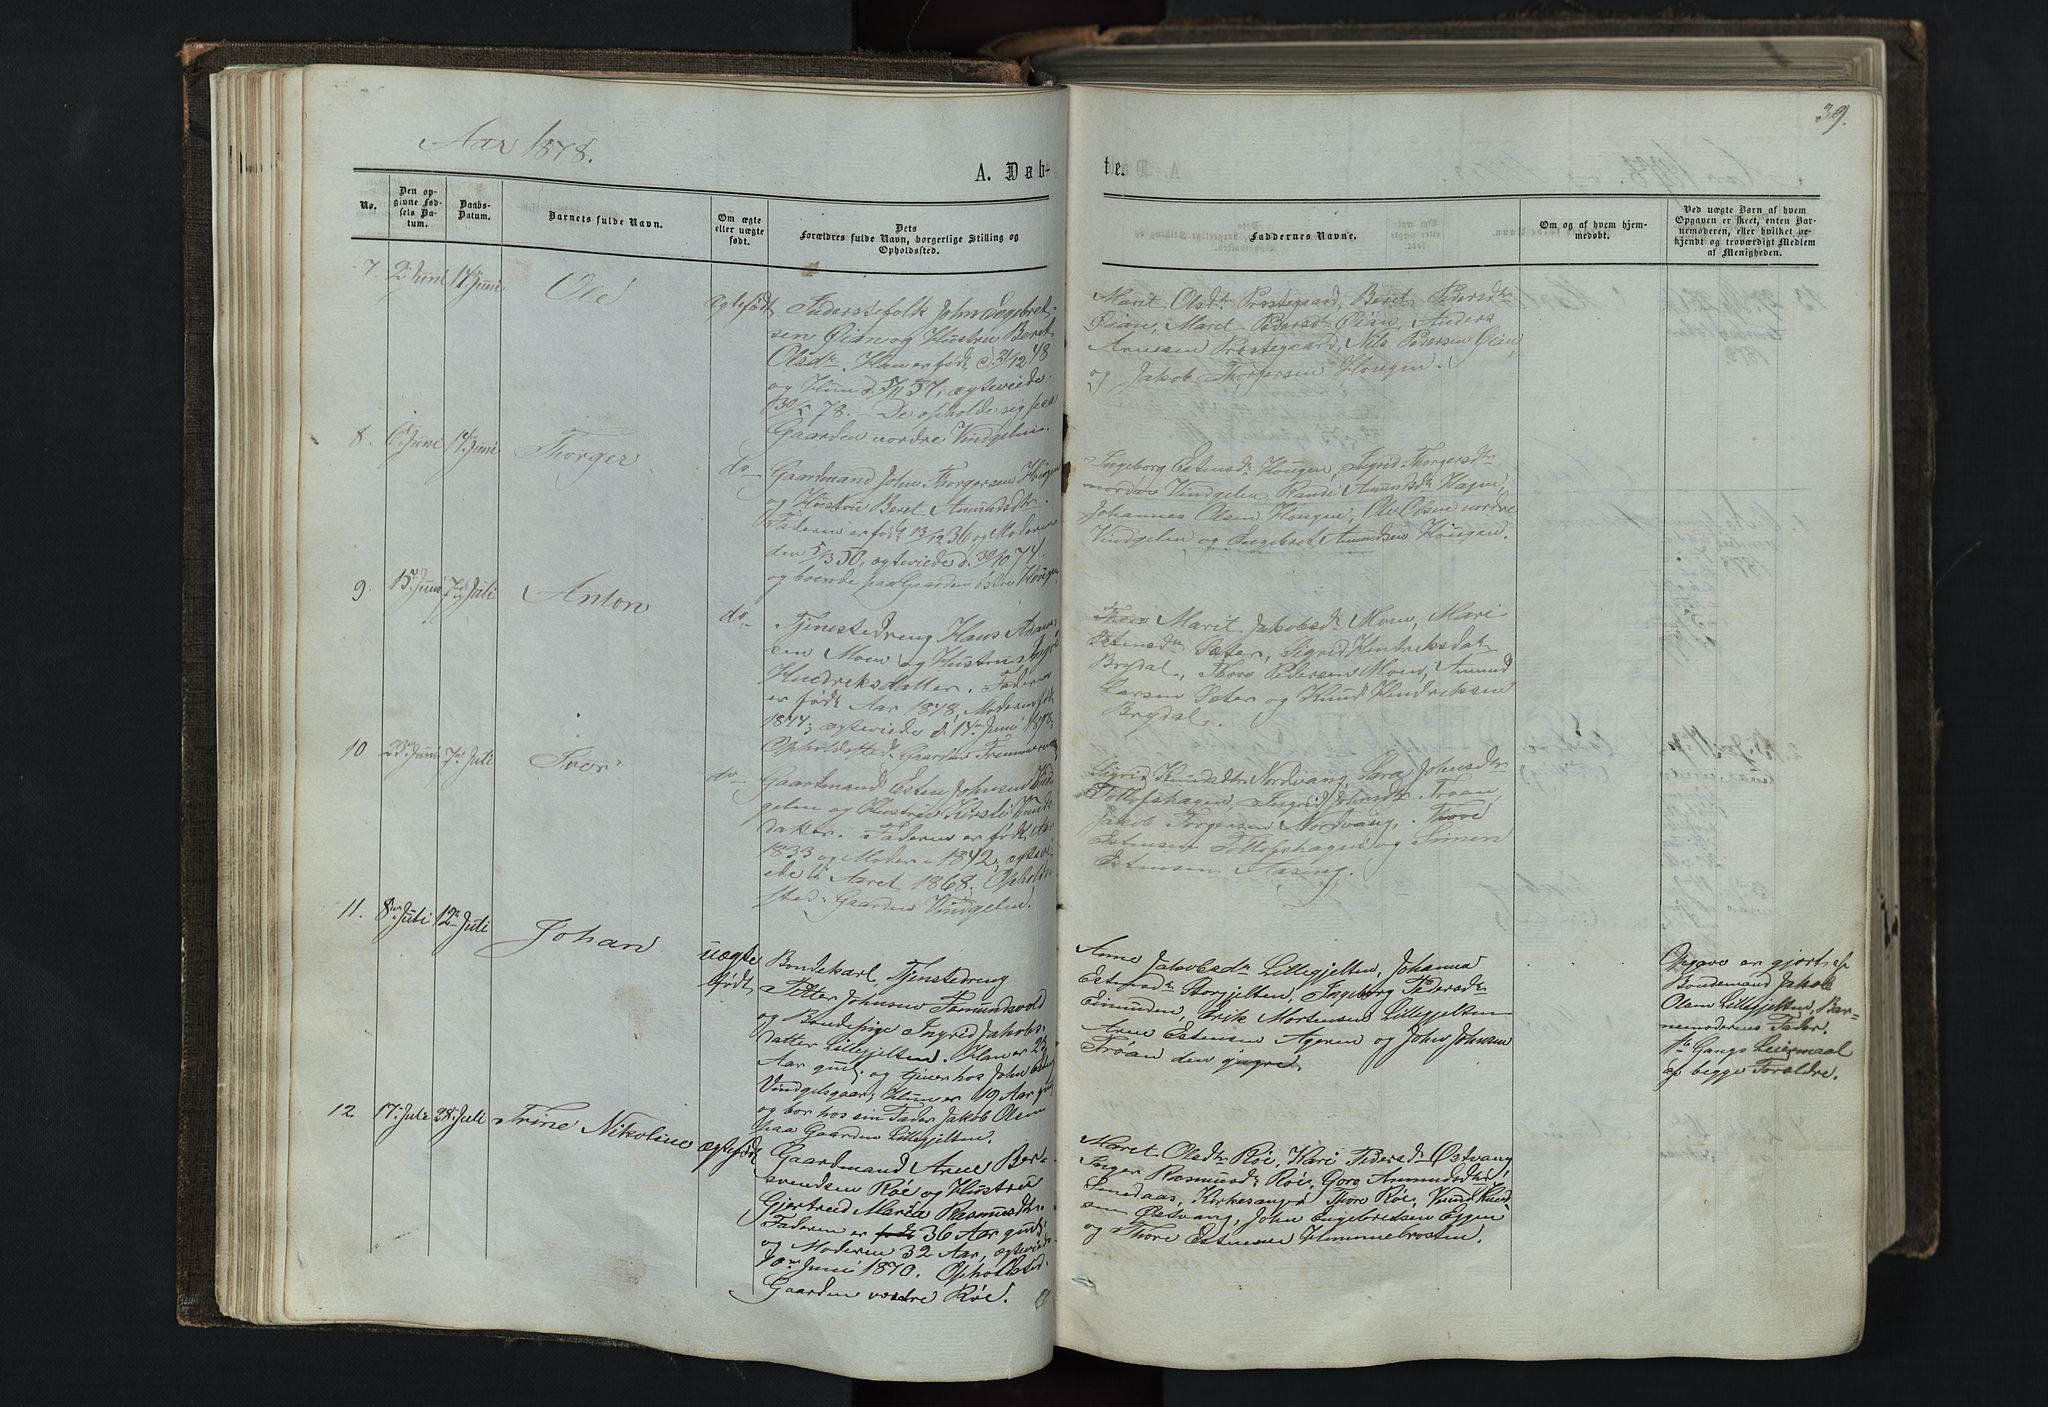 39.
Aar 1878.
A. Døb-
te.
No.
Den op-
givne Fød-
sels Da-
tum.
Daabs-
Datum.
Barnets fulde Navn.
Om ægte
eller uægte
født.
Dets
Forældres fulde Navn, borgerlige Stilling og
Opholdssted.
Faddernes Navne.
Om og af hvem hjem-
medøbt.
Ved uægte Børn af hvem
Opgaven er skeet, enten Bar-
nemoderen, eller hvilket ve-
kjendt og troværdigt Medlem
af Menigheden.
7. 2 Juni 14 Juni Ole
ægtefødt
Inderstefolk John Engebret-
sen Øian og Hustru Beret
Olsdtr. Han er født d. 21/12 48
og Hun d. 5/11 57, ægteviede
30/5 78. De opholde sig paa
Gaarden nordre Vindgelen.
Marit Olsdtr Præstegaard, Beret Pedersdtr
Øian, Maret Pedersdtr Øian, Anders
Arnesen Præstegaard, Nils Pedersen Øian,
og Jakob Thorgersen Hougen.
8. 6 Juni 14 Juni Thorger
do
Gaardmand John Thorgersen Hougen
og Hustru Beret Amundsdtr.
Faderen er født 13/12 36 og Moderen
den 5/3 50, ægteviede d. 30/10 74.
og boende paa Gaarden østre Hougen.
Ingeborg Estensdtr Hougen, Sigrid Thorgersdtr
nordre Vindgelen, Randi Amundsdtr Hagen,
Johannes Olsen Hougen, Ole Olsen nordre
Vindgelen og Engebret Amundsen Hougen.
9. 15 Juni 7 Juli Anton
do
Tjenestedreng Hans
sen Moen og Hustru
Hendriksdatter. Faderen
er født Aar 1848, Moderen født
1847; ægteviede d. 14 Juni 1878;
Opholdssted Gaarden
Thore Marit Jakobsdtr Moen, Mari
Estensdtr Sæter, Sigrid Hendriksdatr
Brydal, Thore Pedersen Moen, Amund
Larsen Sæter og Knud Hendriksen
Brydal.
10 23 Juni 7 Juli Iver
do
Gaardmand Esten Johnsen Vind-
gelen og Hustru Kirsti
datter. Faderen er født Aar
1833 og Moderen 1842, ægtevi-
ede i Aaret 1868. Opholds-
sted: Gaarden Vindgelen.
Sigrid Knudsdtr Nordvang, Sara Johnsdtr
Tollefshagen, Ingrid Johnsdtr Troan,
Jakob Torgersen Nordvang, Thore
Estensen Tollefshagen og Simen
Estensen Aasing.
11. 8 Juli 12 Juli Johan
uægte
født
Bondekarl, Tjenestedreng
Petter Johnsen Fæmundsvold
og Bondepige Ingrid Jakobs-
datter Lillegjelten. Han er 23
Aar gml. og tjener hos John Esten
Vindgelsgaar; Hun er 19 Aar gml
og bor hos sin Fader Jakob Olsen
paa Gaarden Lillegjelten.
Anne Jakobsdtr Lillegjelten, Johanna
Estensdtr Storgjelten, Ingeborg Pedersdtr
Eimunden, Erik Mortensen Lillegjelten
Arne Estensen Ageren og John Johnsen
Troan den yngre.
Opgave er gjort af
Bondemand Jakob
Olsen Lillegjelten, Bar-
nemoderens Fader.
1ste Gangs Leiermaal
af begge Forældre.
12 17 Juli 28 Juli Trine Nikoline ægtefødt
Gaardmand Arne Ber-
svendsen Røe og Hustru
Gjertrud Maria Rasmusdtr.
Faderen er født 36 Aar gml
og Moderen 32 Aar, ægteviede
Juni 1870. Opholdssted
Gaarden vestre Røe.
Maret Olsdtr Røe, Kari Pedersdtr Østvang,
Inger Rasmusdtr Røe, Goro Amundsdtr
Sandaas, Kirkesanger Thore Røe, Knud Knud-
sen Østvang, John Engebretsen Eggen
og Thore Estensen Himmebrosten.